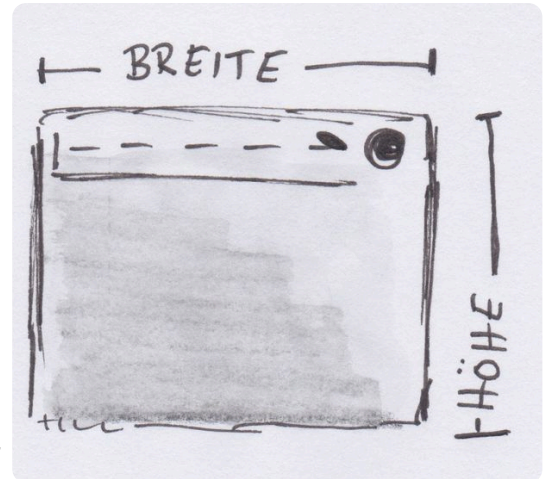 BREITE
HÖHE